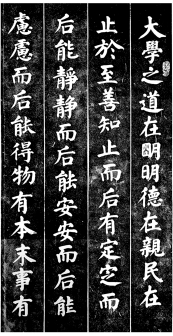 大學之道在眀明德在親民在
止於至善知止而后有定定而
后能靜靜而后能安安而后能
慮慮而后能得物有本末事有